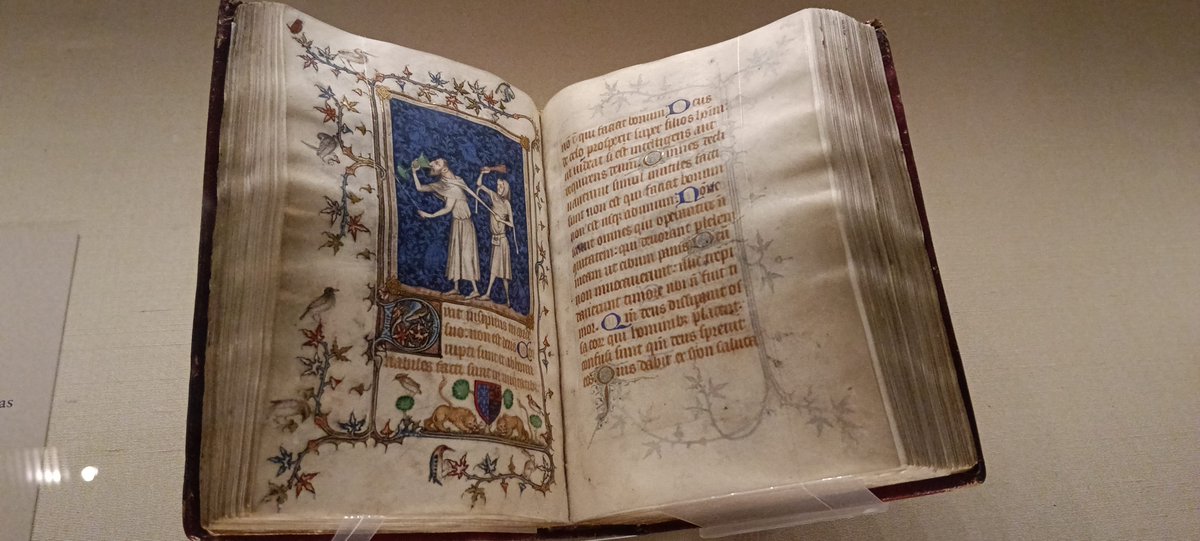 Dixit insipiens in corde
suo: non est deus. Co
rupti sunt et abhomi
nabiles facti sunt in
nō ē qui faciat bonum. Deus
de celo prosperit super filios hōīm:
ut videat si est intelligens aut
requirens deum. Omnes decli
naverunt simul inutiles facti
sunt non est qui faciat bonum
non est usq; ad unum. Nonne
scient omnes qui operantur in
quitatem: qui devorant plebem
meam ut cibum panis. Deū
non invocaverunt: illic trepi
daverunt timore ubi nō fuit ti
mor. Qm̄ deus dissipavit os
sa eor qui hominibz placent:
confusi sunt qm̄ deus sprevit
eos. Quis dabit ex syon saluta
as